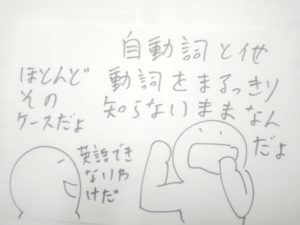 自動詞と他
動詞をまるっきり
知らないままなん
だよ
ほとんど
その
ケースだよ
英語でき
ないわ
けだ